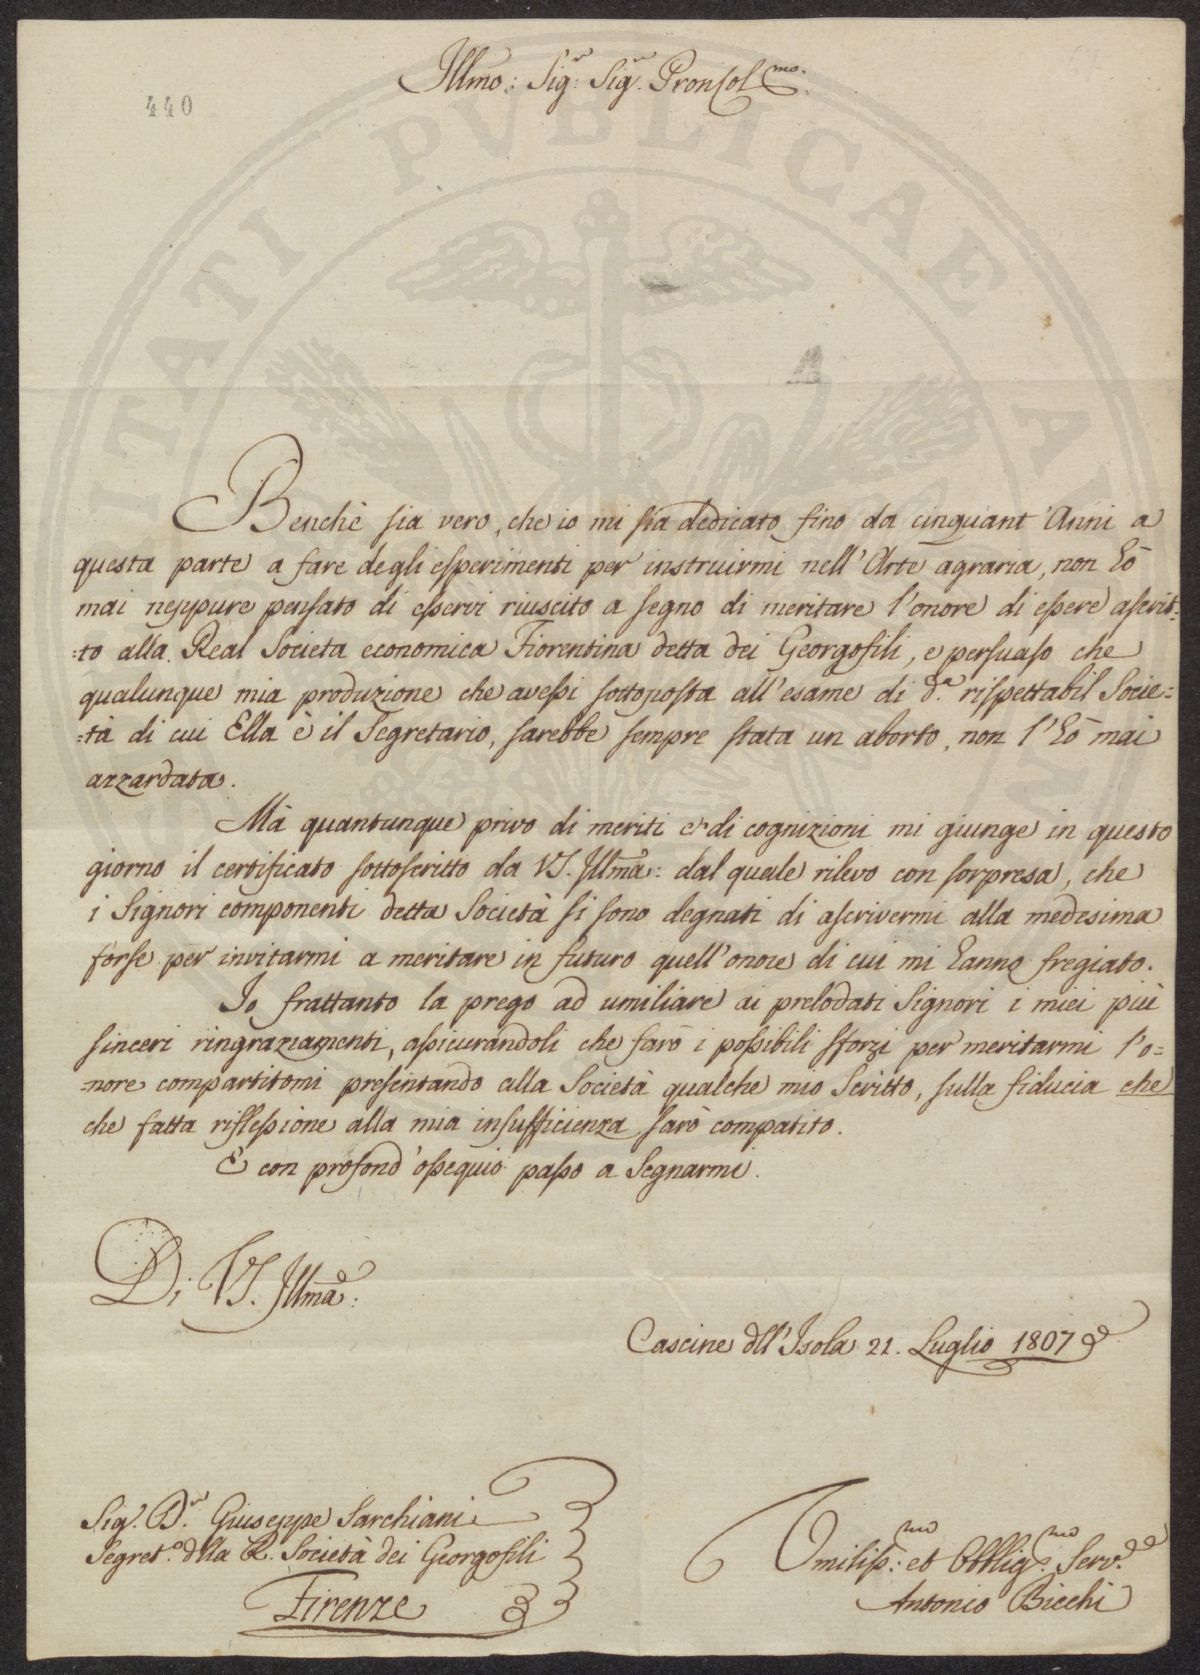 440
Illmo: Sigr: Sigr. Pron Colmo:
Benchè sia vero, che io mi sia dedicato fino da cinquant'Anni a
questa parte a fare degli esperimenti per instruirmi nell'Arte agraria, non hò
mai neppure pensato di esservi riuscito a segno di meritare l'onore di essere ascrit=
=to alla Real Società economica Fiorentina detta dei Georgofili, e persuaso che
qualunque mia produzione che avessi sottoposta all'esame di da. rispettabil Socie=
=tà di cui Ella è il Segretario, sarebbe sempre stata un aborto, non l'hò mai
azzardata.
Mà quantunque privo di meriti e di cognizioni mi giunge in questo
giorno il certificato sottoscritto da VS. Illma: dal quale rilevo con sorpresa, che
i Signori componenti detta Società si sono degnati di ascrivermi alla medesima
forse per invitarmi a meritare in futuro quell'onore di cui mi hanno fregiato.
Io frattanto la prego ad umiliare ai prelodati Signori i miei più
sinceri ringraziamenti, assicurandoli che farò i possibili sforzi per meritarmi l'o=
=nore compartitomi presentando alla Società qualche mio Scritto, sulla fiducia che
che fatta riflessione alla mia insufficienza sarò compatito.
E con profond'ossequio passo a Segnarmi.
Di VS. Illma:
Cascine dll'Isola 21. Luglio 1807
Sigr. Dr. Giuseppe Sarchiani
Segreto. dlla R. Società dei Georgofili
Firenze
Umilissmo: et Obbligmo: Serve.
Antonio Bicchi
PVBLICAE